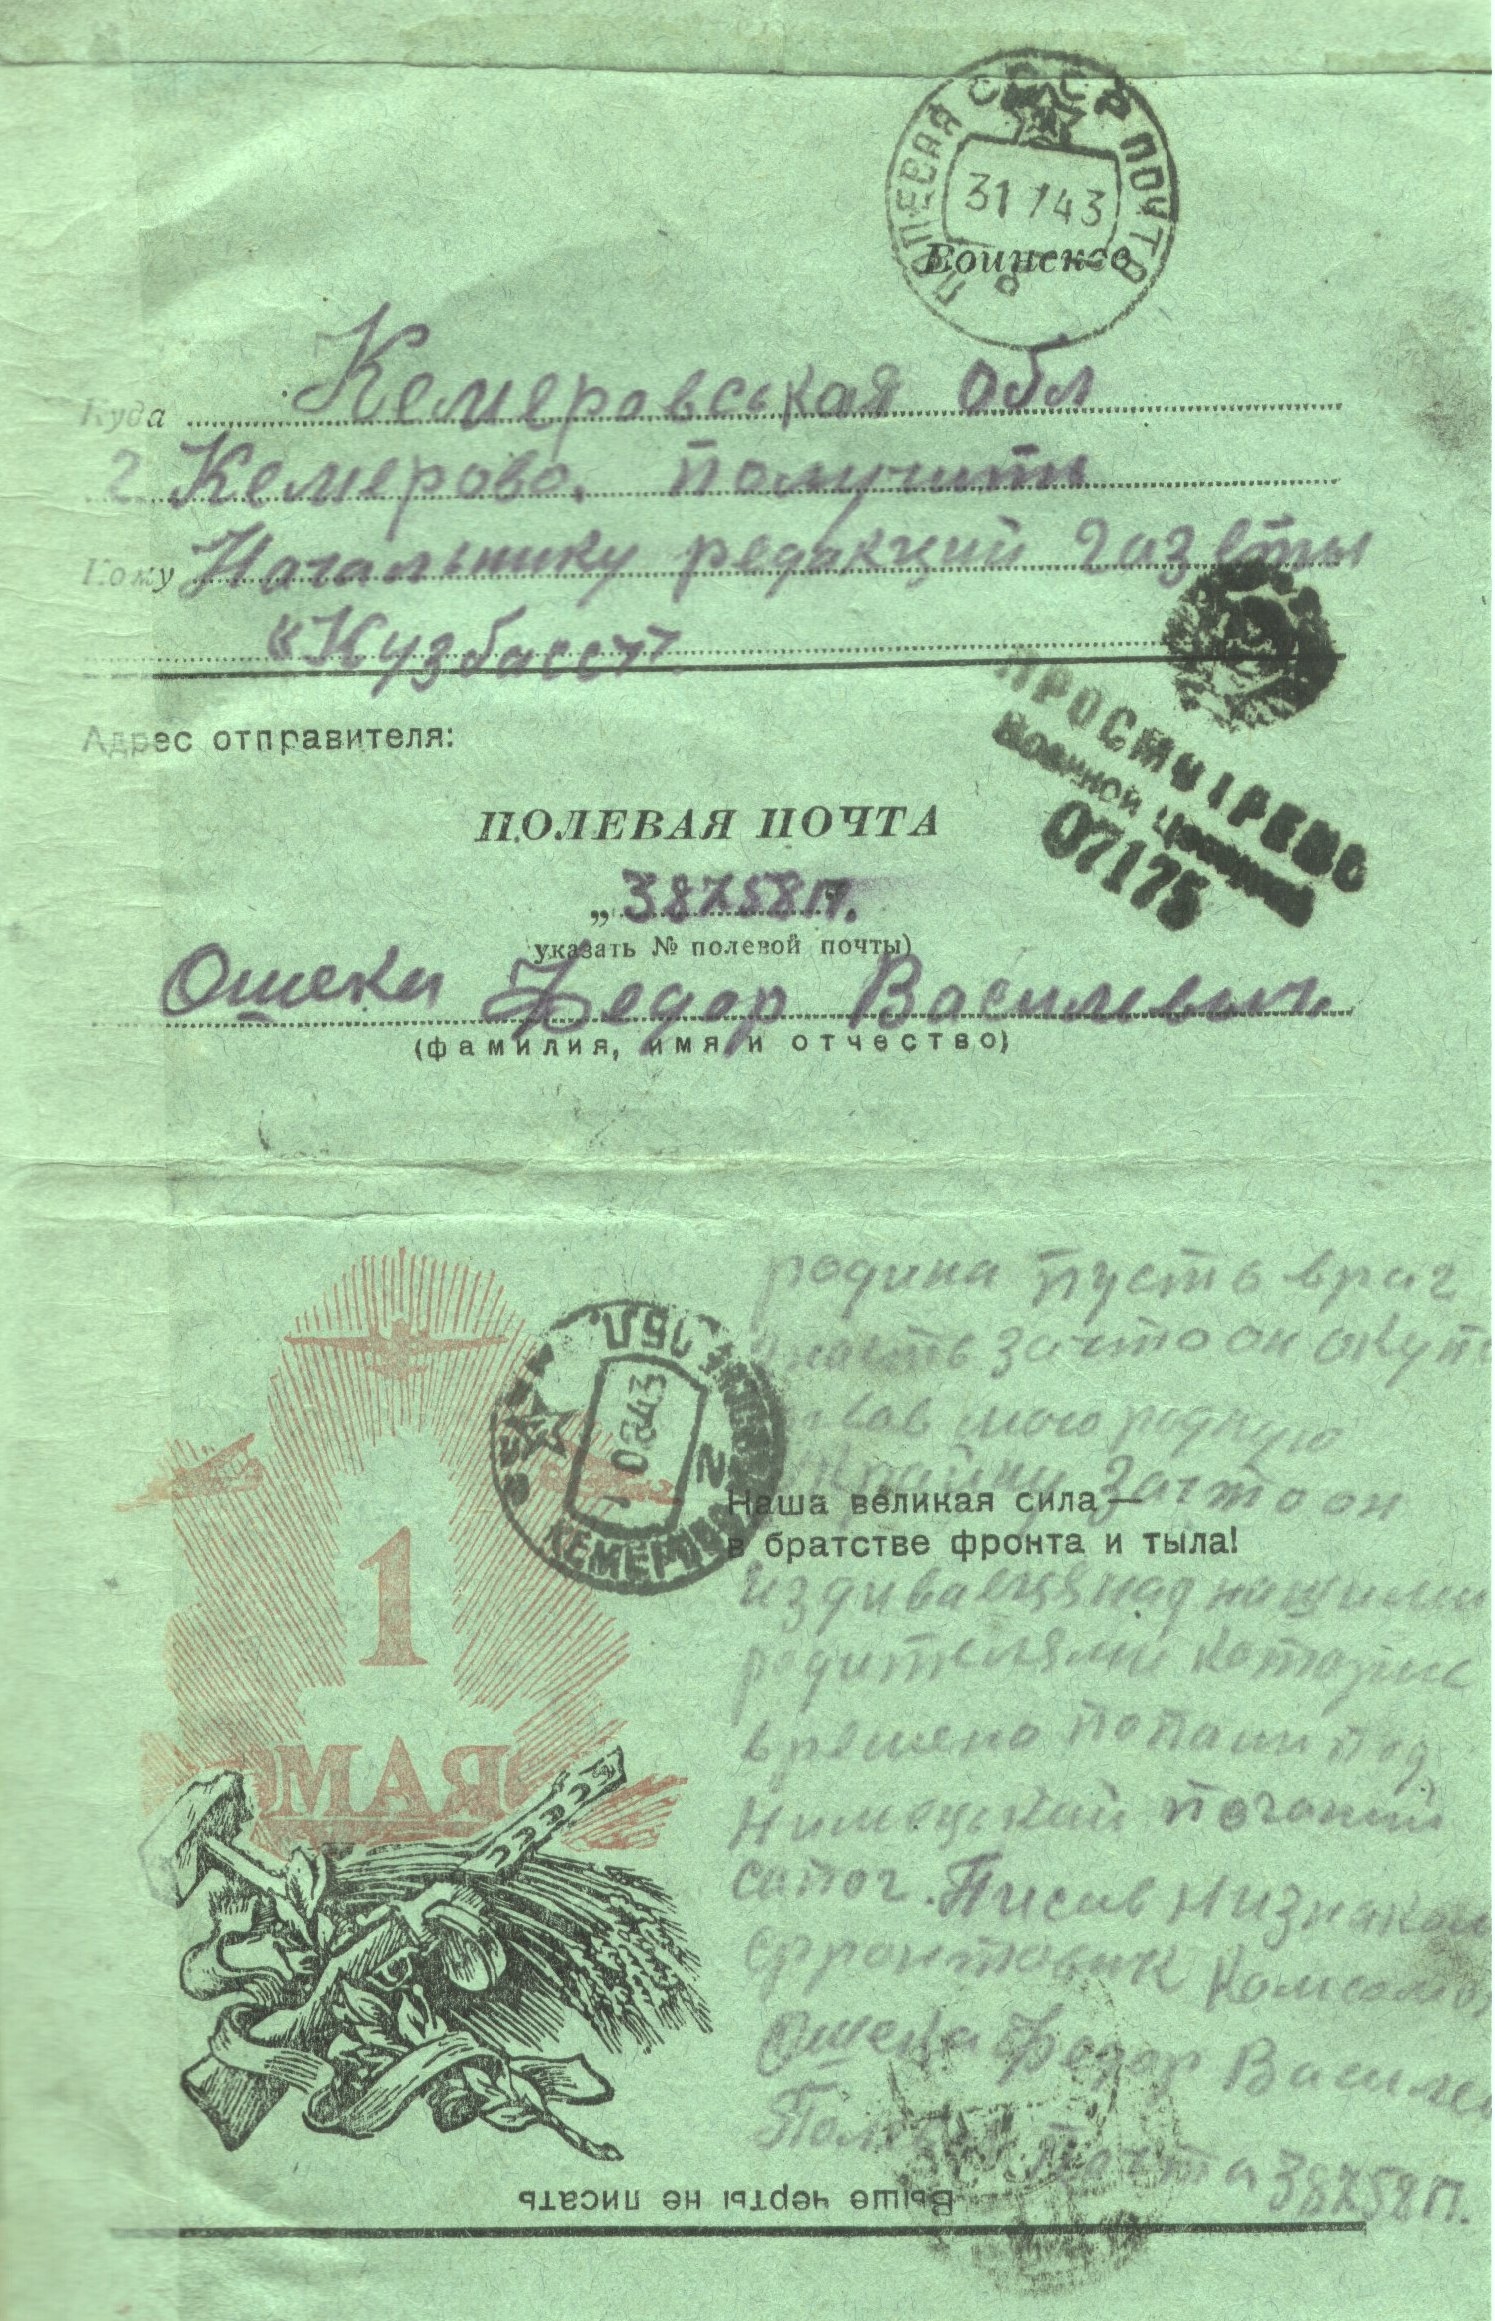 ПОЛЕВАЯ ПОЧТА
СССР
31 7 43
Воинское
Куда Кемеровськая обл
г Кемерово. получить
Кому Начальнику редакций газеты
«Кузбасс»
Адрес отправителя:
ПРОСМОТРЕНО
Военной Цензурой
07175
ПОЛЕВАЯ ПОЧТА
„ 38758П.
указать № полевой почты)
Ошека Федор Василевич
(фамилия, имя и отчество)
родина пусть враг
знаеть за что он окупи
ровав мою родную
Украйну За что он
КЕМЕРОВО
43
Наша великая сила—
в братстве фронта и тыла!
1
МАЯ
издиваецця над нашими
родителями которые
времено попали под
Нимецький поганий
сапог. Писав Низнаком
фронтовик Комсомо
Ошека Федор Василев
Полева Почта 38758П.
Выше черты не писать